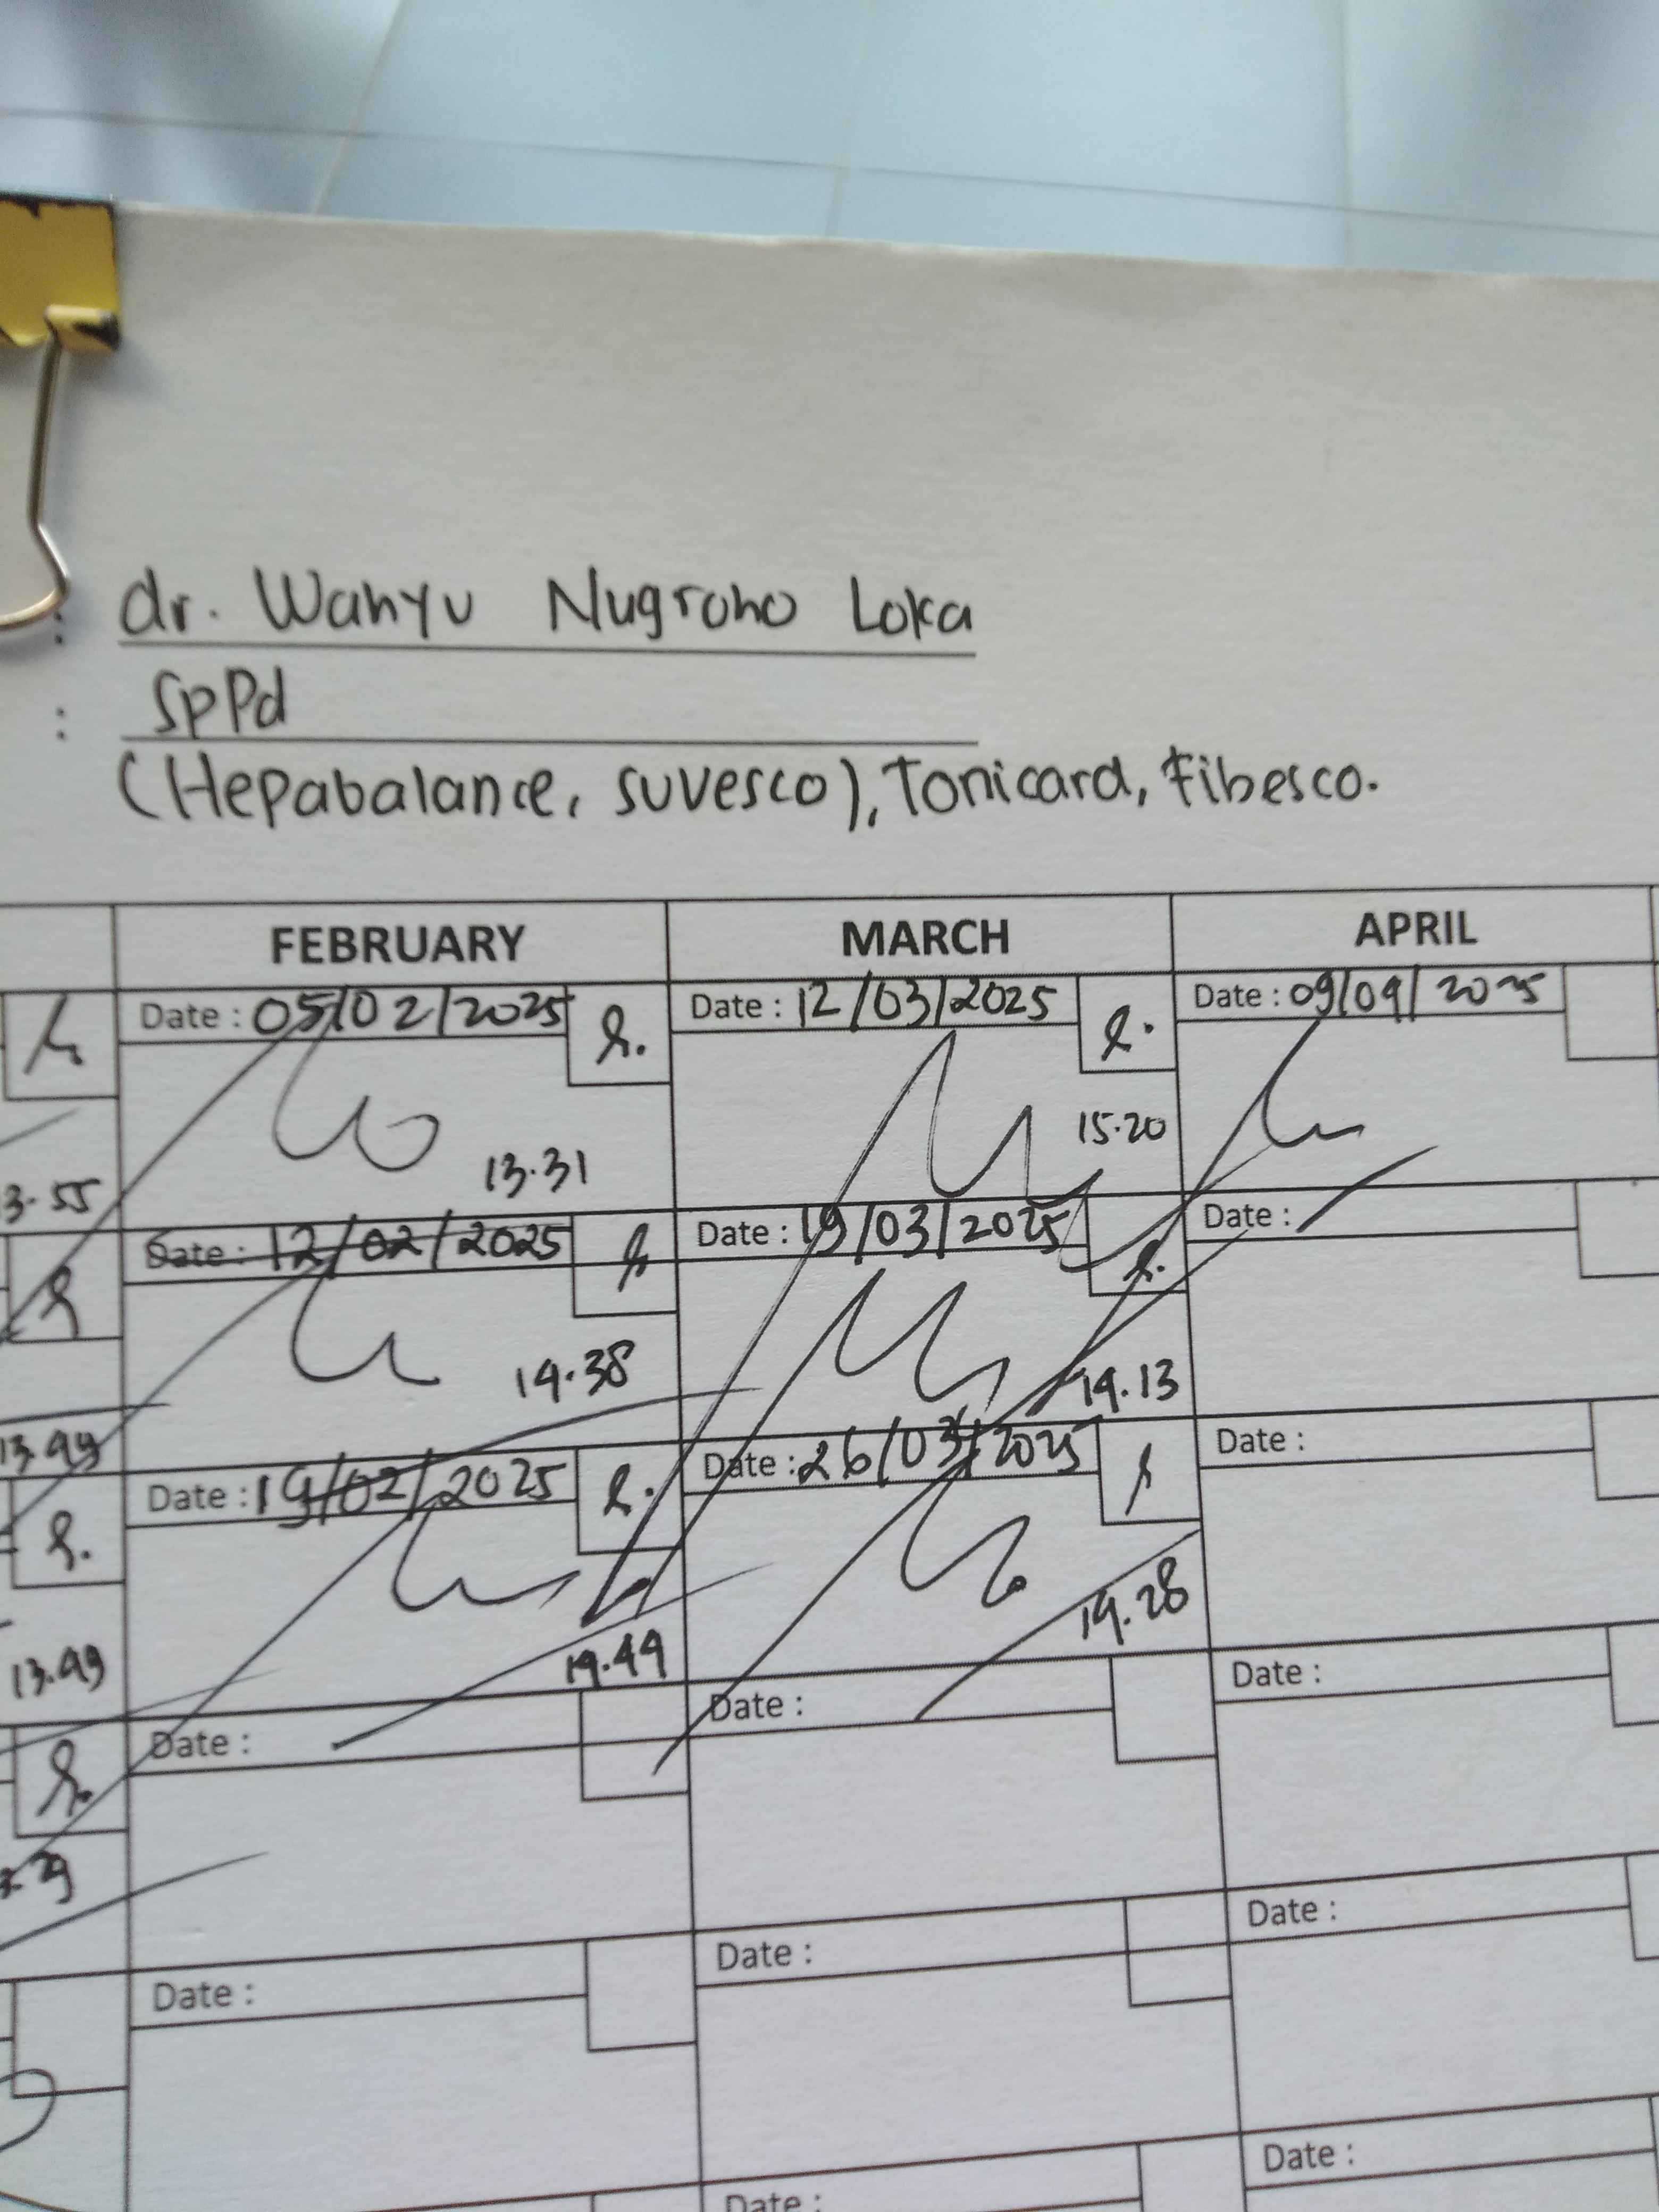 : dr. Wahyu Nugroho Loka
: SpPd
(Hepabalance, suvesco), Tonicard, Fibesco.
FEBRUARY MARCH APRIL
Date : 05/02/2025 Date : 12/03/2025 Date : 09/04/2025
13.31 15.20
3.55
Date : 12/02/2025 Date : 19/03/2025 Date :
14.38 14.13
13.49
Date : 19/02/2025 Date : 26/03/2025 Date :
14.44 14.28
13.49
Date : Date : Date :
Date : Date : Date :
Date : Date :